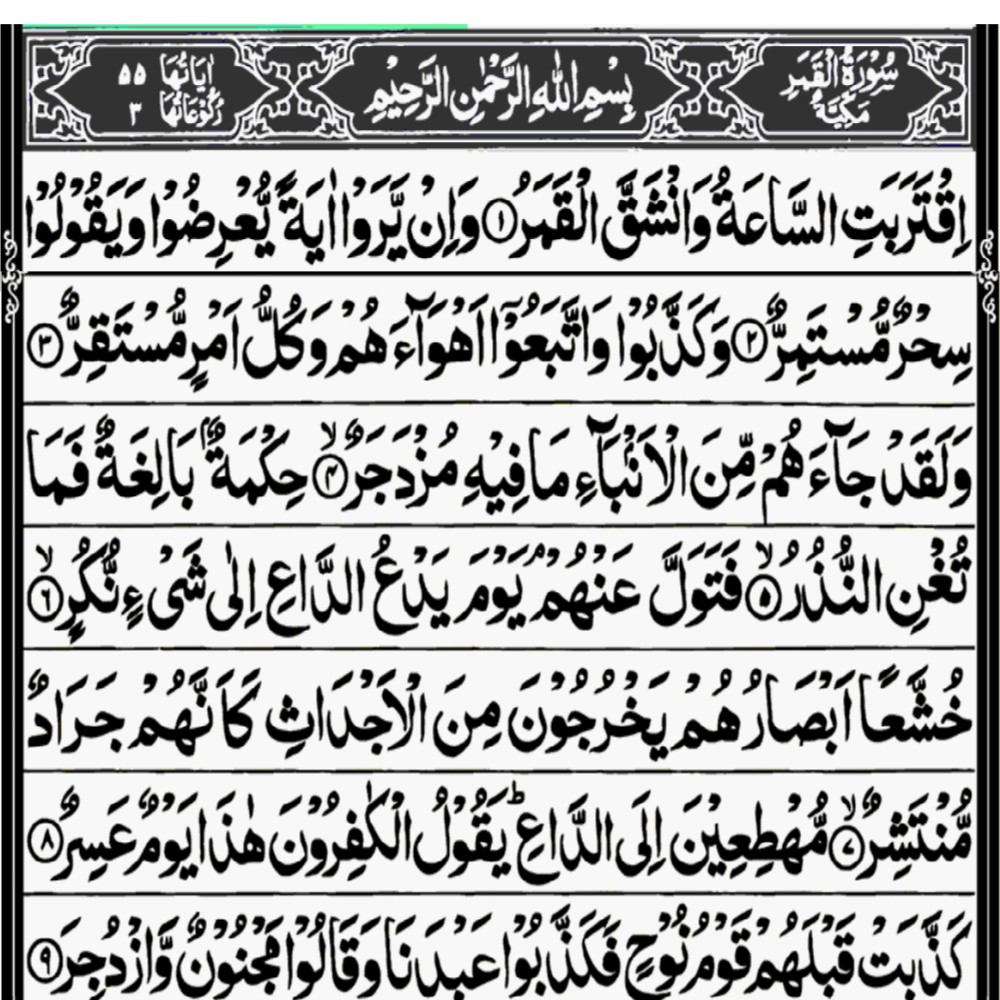 سُوْرَةُ الْقَمَرِ مَكِّيَّةٌ بِسْمِ اللّٰهِ الرَّحْمٰنِ الرَّحِيْمِ اٰيَاتُهَا ٥٥ رُكُوْعَاتُهَا ٣
اِقْتَرَبَتِ السَّاعَةُ وَانْشَقَّ الْقَمَرُ ١ وَاِنْ يَّرَوْا اٰيَةً يُّعْرِضُوْا وَيَقُوْلُوْا
سِحْرٌ مُّسْتَمِرٌّ ٢ وَكَذَّبُوْا وَاتَّبَعُوْٓا اَهْوَآءَهُمْ وَكُلُّ اَمْرٍ مُّسْتَقِرٌّ ٣
وَلَقَدْ جَآءَهُمْ مِّنَ الْاَنْۢبَآءِ مَا فِيْهِ مُزْدَجَرٌ ۙ ٤ حِكْمَةٌۢ بَالِغَةٌ فَمَا
تُغْنِ النُّذُرُ ۙ ٥ فَتَوَلَّ عَنْهُمْ ۘ يَوْمَ يَدْعُ الدَّاعِ اِلٰى شَیْءٍ نُّكُرٍ ۙ ٦
خُشَّعًا اَبْصَارُهُمْ يَخْرُجُوْنَ مِنَ الْاَجْدَاثِ كَاَنَّهُمْ جَرَادٌ
مُّنْتَشِرٌ ۙ ٧ مُّهْطِعِيْنَ اِلَى الدَّاعِ ؕ يَقُوْلُ الْكٰفِرُوْنَ هٰذَا يَوْمٌ عَسِرٌ ٨
كَذَّبَتْ قَبْلَهُمْ قَوْمُ نُوْحٍ فَكَذَّبُوْا عَبْدَنَا وَقَالُوْا مَجْنُوْنٌ وَّازْدُجِرَ ٩